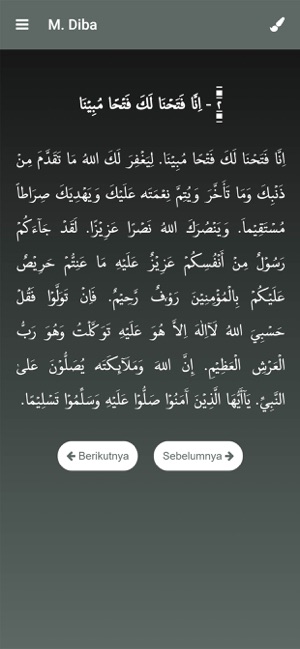 M. Diba
٢ - اِنَّا فَتَحْنَا لَكَ فَتْحًا مُبِيْنَا
اِنَّا فَتَحْنَا لَكَ فَتْحًا مُبِيْنَا. لِيَغْفِرَ لَكَ اللهُ مَا تَقَدَّمَ مِنْ
ذَنْبِكَ وَمَا تَأَخَّرَ وَيُتِمَّ نِعْمَتَه عَلَيْكَ وَيَهْدِيَكَ صِرَاطاً
مُسْتَقِيْماَ. وَيَنْصُرَكَ اللهُ نَصْرًا عَزِيْزًا. لَقَدْ جَآءَكُمْ
رَسُوْلٌ مِنْ اَنْفُسِكُمْ عَزِيْزٌ عَلَيْهِ مَا عَنِتُّمْ حَرِيْصٌ
عَلَيْكُمْ بِالْمُؤْمِنِيْنَ رَوُفٌ رَّحِيْمٌ. فَاِنْ تَوَلَّوْا فَقُلْ
حَسْبِيَ اللهُ لَآاِلٰهَ اِلاَّ هُوَ عَلَيْهِ تَوَكَّلْتُ وَهُوَ رَبُّ
الْعَرْشِ الْعَظِيْمِ. اِنَّ اللهَ وَمَلَآئِكَتَه يُصَلُّوْنَ عَلَى
النَّبِيِّ. يَآاَيُّهَا الَّذِيْنَ آمَنُوْا صَلُّوْا عَلَيْهِ وَسَلِّمُوْا تَسْلِيْمًا.
Berikutnya Sebelumnya